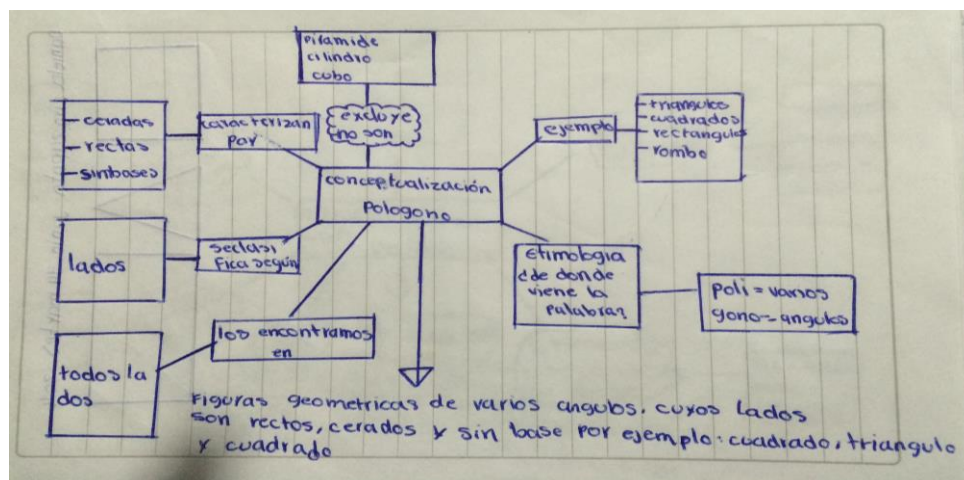 Piramide
cilindro
cubo
excluye
no son
- ceradas
- rectas
- sinbases
caracterizan
por
ejemplo
- triangulos
- cuadrados
- rectangulos
- rombo
conceptualización
Pologono
lados
seclasi
fica según
los encontramos
en
todos la
dos
Etimologia
¿de donde
viene la
palabra?
poli = varios
gono = angulos
Figuras geometricas de varios angulos. cuyos lados
son rectos, cerados y sin base por ejemplo: cuadrado, triangulo
y cuadrado